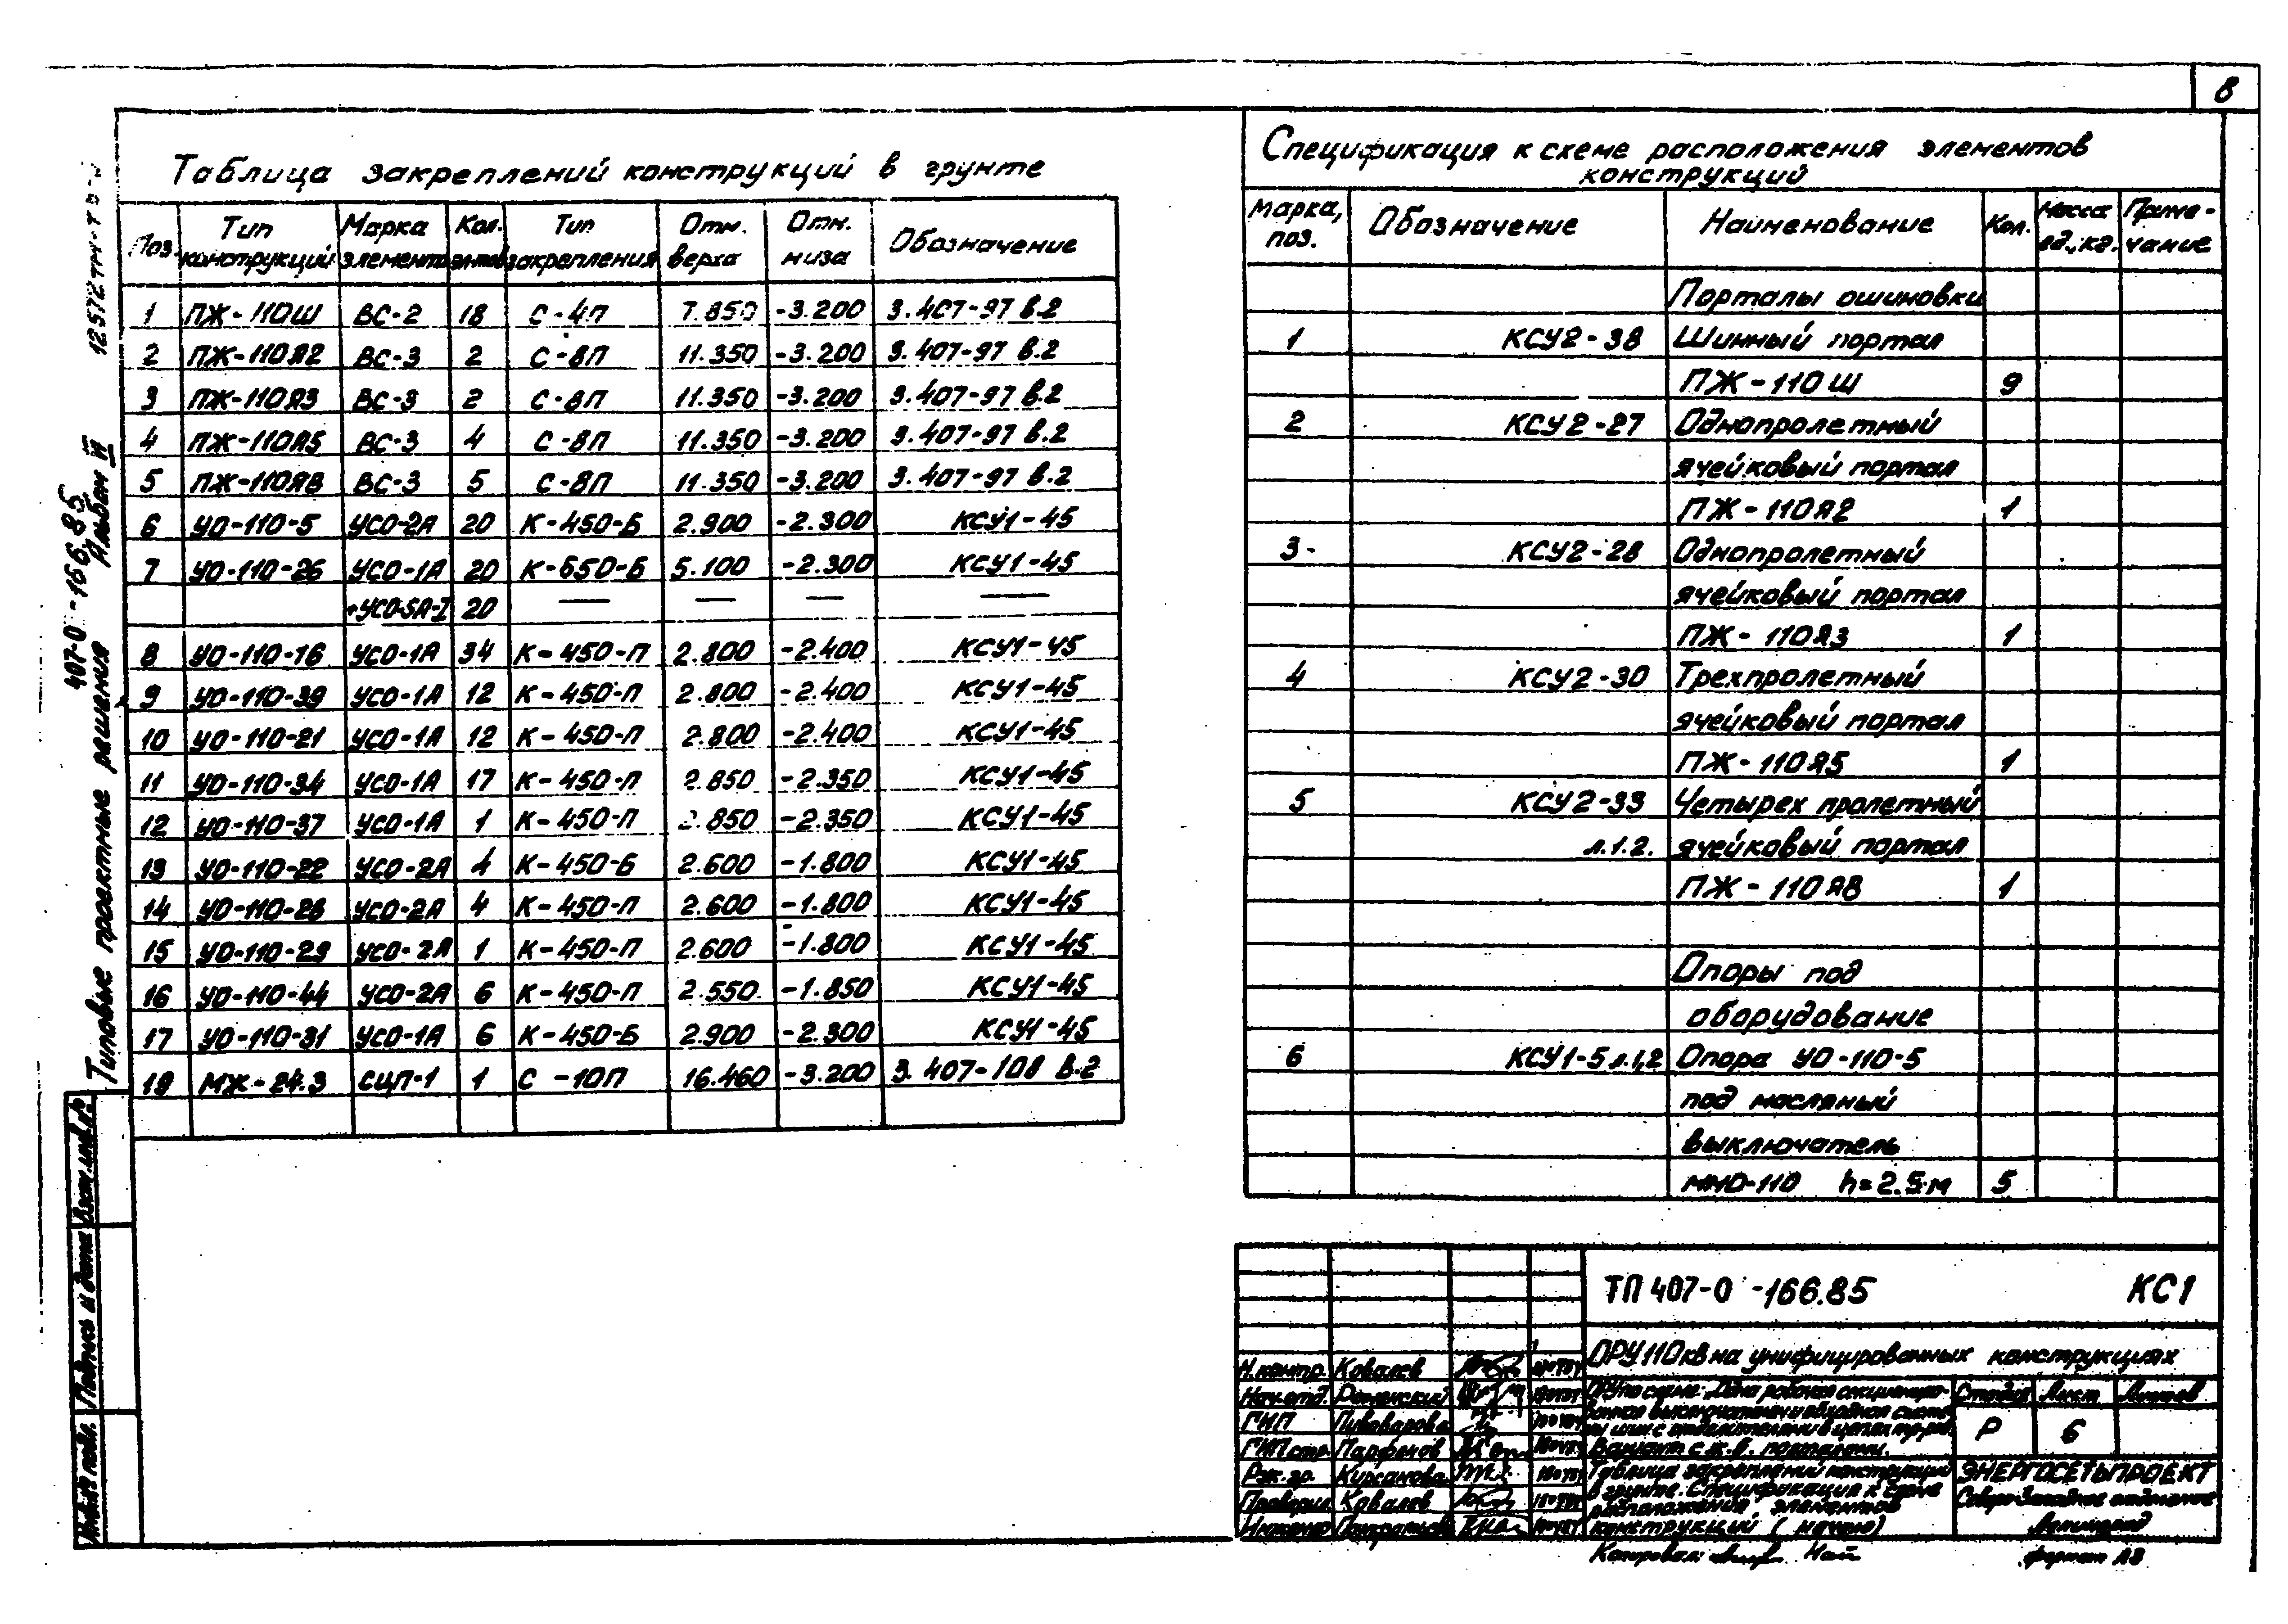 8
Таблица закреплений конструкций в грунте
Поз. Тип конструкций Марка элемента Кол. эл-тов Тип закрепления Отм. верха Отм. низа Обозначение
1 ПЖ-110Ш ВС-2 18 С-4П 7.850 -3.200 3.407-97 в.2
2 ПЖ-110Я2 ВС-3 2 С-8П 11.350 -3.200 3.407-97 в.2
3 ПЖ-110Я3 ВС-3 2 С-8П 11.350 -3.200 3.407-97 в.2
4 ПЖ-110Я5 ВС-3 4 С-8П 11.350 -3.200 3.407-97 в.2
5 ПЖ-110Я8 ВС-3 5 С-8П 11.350 -3.200 3.407-97 в.2
6 УО-110-5 УСО-2А 20 К-450-Б 2.900 -2.300 КСУ1-45
7 УО-110-26 УСО-1А 20 К-650-Б 5.100 -2.300 КСУ1-45
+УСО-5А-I 20 — — — —
8 УО-110-16 УСО-1А 34 К-450-П 2.800 -2.400 КСУ1-45
9 УО-110-39 УСО-1А 12 К-450-П 2.800 -2.400 КСУ1-45
10 УО-110-21 УСО-1А 12 К-450-П 2.800 -2.400 КСУ1-45
11 УО-110-34 УСО-1А 17 К-450-П 2.850 -2.350 КСУ1-45
12 УО-110-37 УСО-1А 1 К-450-П 2.850 -2.350 КСУ1-45
13 УО-110-22 УСО-2А 4 К-450-Б 2.600 -1.800 КСУ1-45
14 УО-110-28 УСО-2А 4 К-450-П 2.600 -1.800 КСУ1-45
15 УО-110-29 УСО-2А 1 К-450-П 2.600 -1.800 КСУ1-45
16 УО-110-44 УСО-2А 6 К-450-П 2.550 -1.850 КСУ1-45
17 УО-110-31 УСО-1А 6 К-450-Б 2.900 -2.300 КСУ1-45
19 МЖ-24.3 СЦП-1 1 С-10П 16.460 -3.200 3.407-108 в.2
Спецификация к схеме расположения элементов
конструкций
Марка, поз. Обозначение Наименование Кол. Масса ед., кг. Приме-чание
Порталы ошиновки
1 КСУ2-38 Шинный портал
ПЖ-110Ш 9
2 КСУ2-27 Однопролетный
ячейковый портал
ПЖ-110Я2 1
3- КСУ2-28 Однопролетный
ячейковый портал
ПЖ-110Я3 1
4 КСУ2-30 Трехпролетный
ячейковый портал
ПЖ-110Я5 1
5 КСУ2-33 Четырех пролетный
л.1.2. ячейковый портал
ПЖ-110Я8 1
Опоры под
оборудование
6 КСУ1-5 л.1,2 Опора УО-110-5
под масляный
выключатель
ММО-110 h=2.5м 5
ТП 407-0-166.85 КС1
ОРУ 110 кВ на унифицированных конструкциях
Н.контр. Ковалев
Нач.отд. Роменский
ГИП Пивоварова
ГИП стр. Парфенов
Рук.гр. Курсанова
Проверил Ковалев
Инженер
ОРУ по схеме: „Одна рабочая секциониро-
ванная выключателем и обходная систе-
мы шин с отделителями в цепях тр-ров.
Вариант с ж.б. порталами.
Стадия Лист Листов
Р 6
Таблица закреплений конструкций
в грунте. Спецификация к схеме
расположения элементов
конструкций (начало)
ЭНЕРГОСЕТЬПРОЕКТ
Северо-Западное отделение
Ленинград
Копировал: формат А3
Типовые проектные решения 407-0-166.85 Альбом II
12572тм-т
Инв.№ подл. Подпись и дата Взам.инв.№